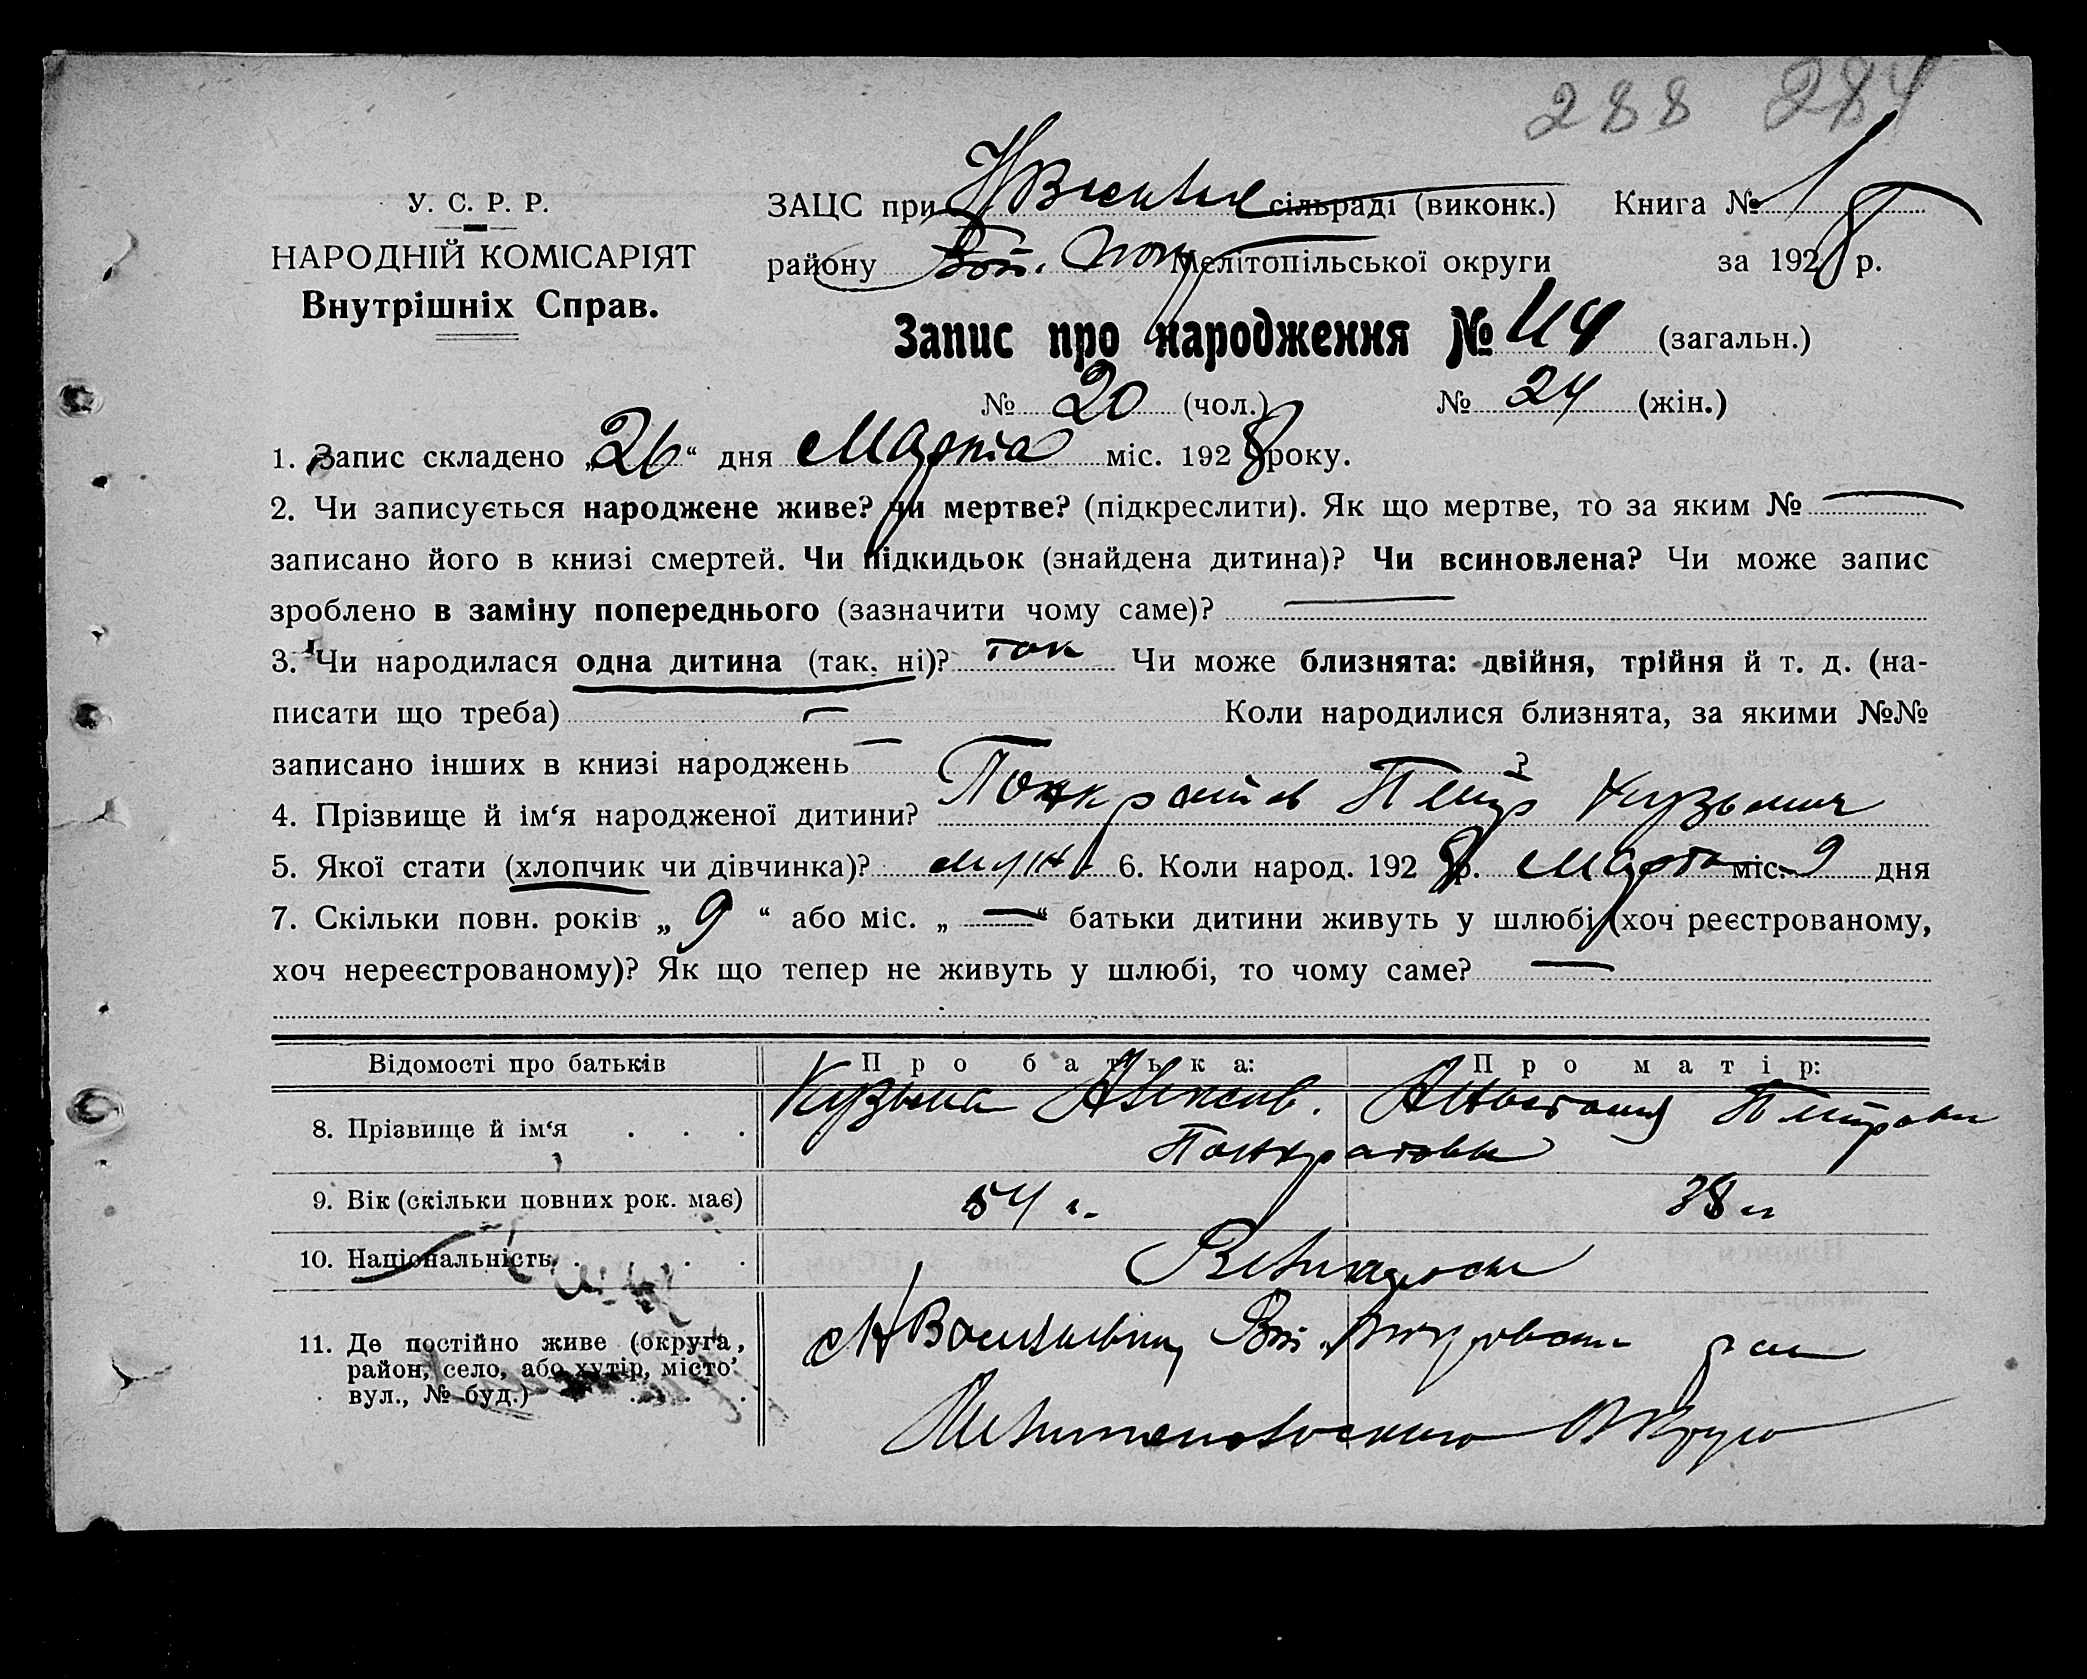 288 284
У. С. Р. Р.
НАРОДНІЙ КОМІСАРІЯТ
Внутрішніх Справ.
ЗАЦС при сільраді (виконк.) Книга № 1
району Мелітопільської округи за 1928 р.
Запис про народження № 44 (загальн.)
№ 20 (чол.) № 24 (жін.)
1. Запис складено „26“ дня Марта міс. 1928 року.
2. Чи записується народжене живе? чи мертве? (підкреслити). Як що мертве, то за яким № —
записано його в книзі смертей. Чи підкидьок (знайдена дитина)? Чи всиновлена? Чи може запис
зроблено в заміну попереднього (зазначити чому саме)? —
3. Чи народилася одна дитина (так, ні)? так Чи може близнята: двійня, трійня й т. д. (на-
писати що треба) — Коли народилися близнята, за якими №№
записано інших в книзі народжень — ?
4. Прізвище й ім‘я народженої дитини? Панкратов Петр Кузьмич
5. Якої стати (хлопчик чи дівчинка)? муж. 6. Коли народ. 1928 р. Марта міс. 9 дня
7. Скільки повн. років „9“ або міс. „—“ батьки дитини живуть у шлюбі (хоч реєстрованому,
хоч нереєстрованому)? Як що тепер не живуть у шлюбі, то чому саме? —
Відомості про батьків Про батька: Про матір:
8. Прізвище й ім‘я . . . Кузьма Алексеев. Анастасия Петровна
Панкратовы
9. Вік (скільки повних рок. має) 54 г. 38 л
10. Національність . . . Великоросы
11. Де постійно живе (округа,
район, село, або хутір, місто
вул., № буд.)
Н Васильевки, рай
Мелитопольского Округа